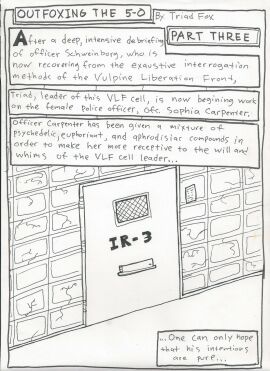 OUTFOXING THE 5-0
By Triad Fox
PART THREE
After a deep, intensive debriefing
of officer Schweinborg, who is
now recovering from the exaustive interrogation
methods of the Vulpine Liberation Front,
Triad, leader of this VLF cell, is now begining work
on the female police officer, Ofc. Sophia Carpenter.
Officer Carpenter has been given a mixture of
psychedelic, euphoriant, and aphrodisiac compounds in
order to make her more receptive to the will and
whims of the VLF cell leader...
IR-3
...One can only hope
that his intentions
are pure...